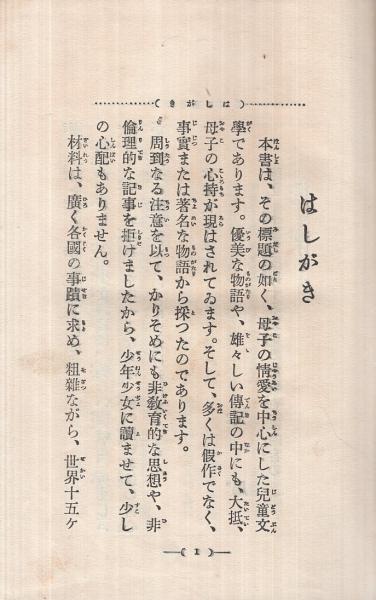 （はしがき）
はしがき
本書は、その標題の如く、母子の情愛を中心にした兒童文
學であります。優美な物語や、雄々しい傳記の中にも、大抵、
母子の心持が現はされてゐます。そして、多くは假作でなく、
事實または著名な物語から採つたのであります。
周到なる注意を以て、かりそめにも非敎育的な思想や、非
倫理的な記事を拒けましたから、少年少女に讀ませて、少し
の心配もありません。
材料は、廣く各國の事蹟に求め、粗雜ながら、世界十五ケ
（1）